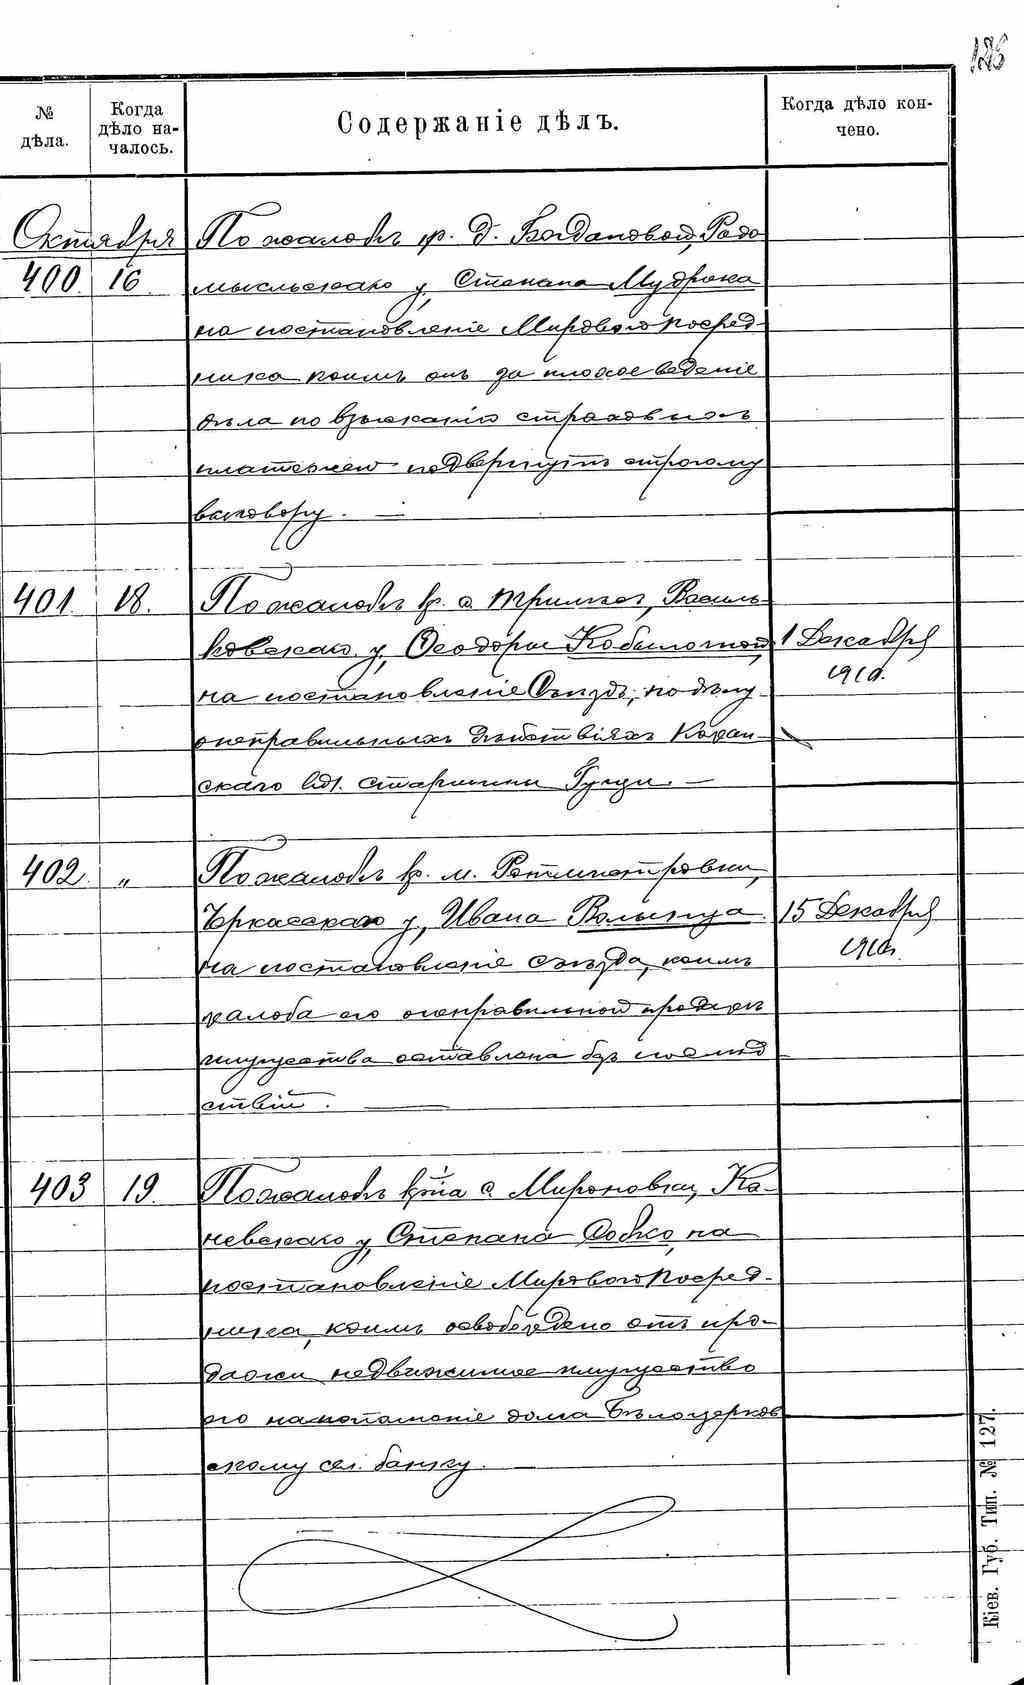 126
№ дѣла.
Когда дѣло на-
чалось.
Содержаніе дѣлъ.
Когда дѣло кон-
чено.
Октября
По жалобѣ кр. д. Богдановой, Радо
400. 16. мысльскаго у, Степана Мудрака
на постановленіе Мирового посред-
ника коимъ онъ за плохое веденіе
дѣла по взысканію страховыхъ
платежей подвергнутъ строгому
выговору. —
401. 18. По жалобѣ кр. с. Трилѣс, Василь-
ковскаго у, Ѳеодоры Кобылочной, 1 Декабря
на постановленіе Съѣзда, по дѣлу 1910.
о неправильныхъ дѣйствіяхъ Кожан-
скаго вол. старшины
402. „ По жалобѣ кр. м. Ротмистровки,
Черкасскаго у, Ивана Волынца 15 Декабря
на постановленіе съѣзда, коимъ 1910.
жалоба его о неправильной продажѣ
имущества оставлена безъ послѣд
ствій. —
403 19. По жалобѣ кр-на с. Мироновки, Ка-
невскаго у, Степана Собко, на
постановленіе Мирового посред-
ника, коимъ освобождено отъ про-
дажи недвижимое имущество
его на пополненіе долга Бѣлоцерков
скому сел. банку. —
Кіев. Губ. Тип. № 127.